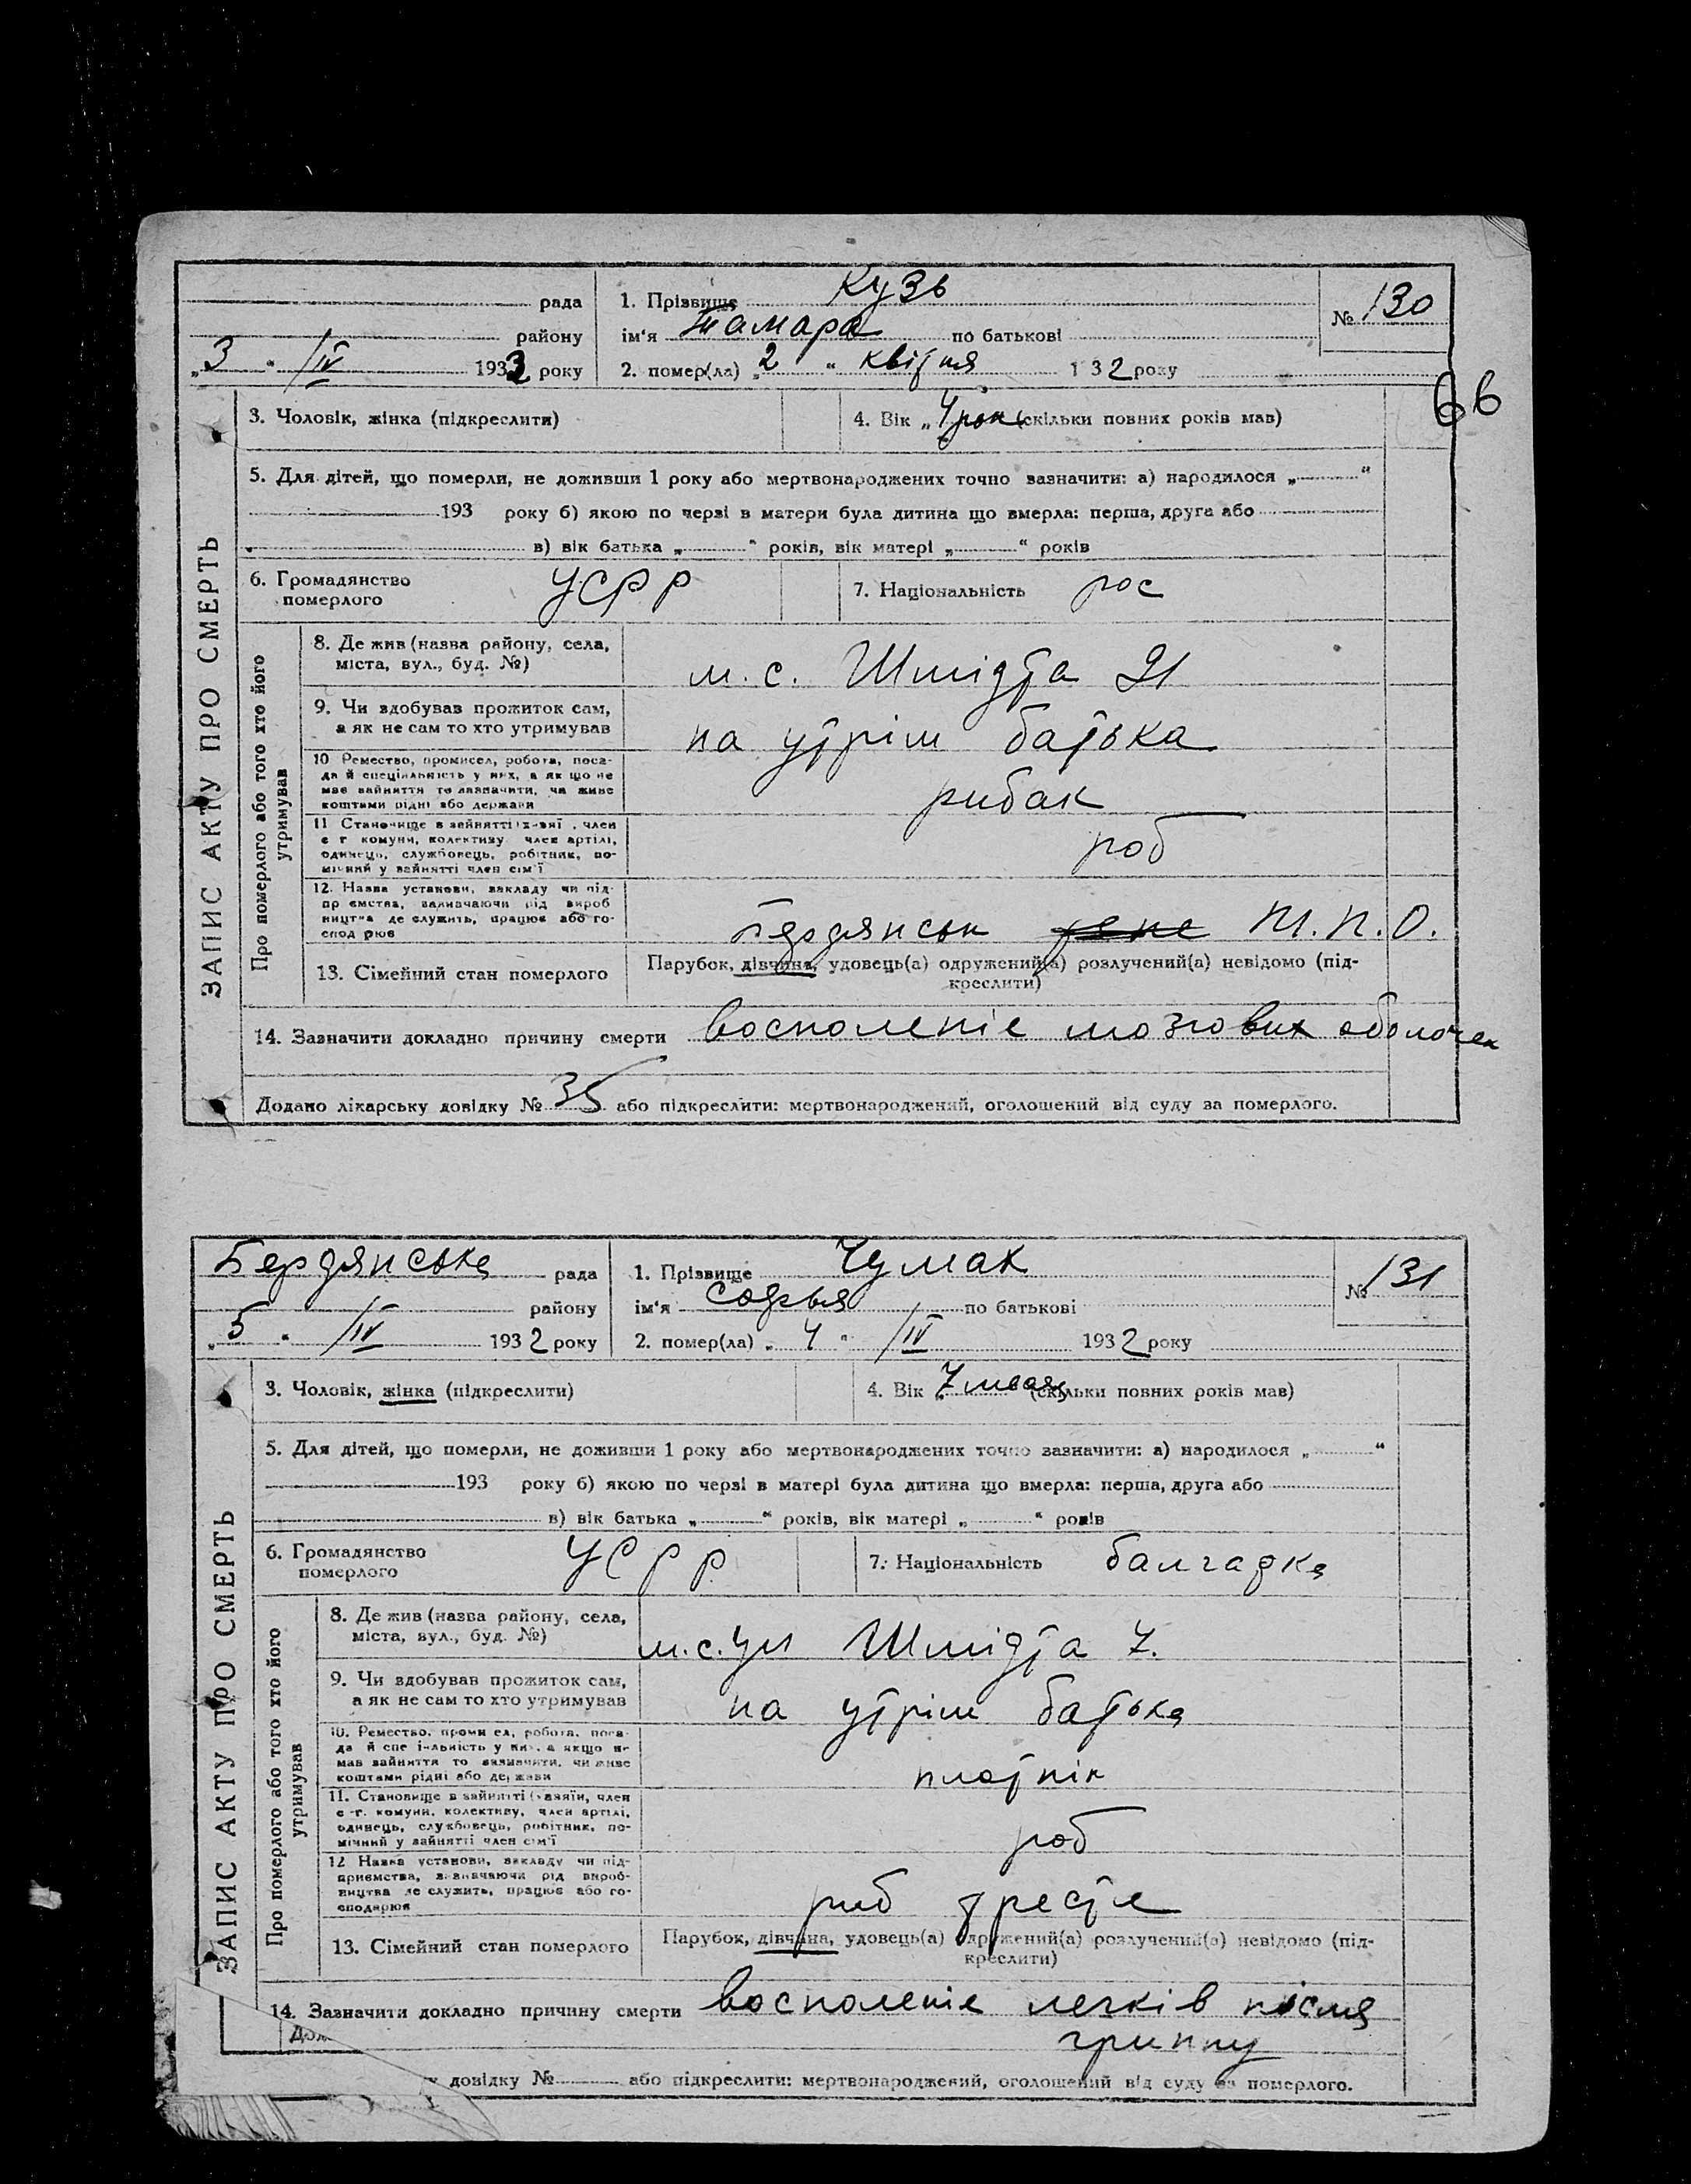 рада
1. Прізвище Кузь
№ 130
району
ім'я Тамара по батькові
„3 " /IV 1932 року
2. помер(ла) „2 " квітня 1 32 року
66
3. Чоловік, жінка (підкреслити)
4. Вік „4 рок (скільки повних років мав)
5. Для дітей, що померли, не доживши 1 року або мертвонароджених точно зазначити: а) народилося „ "
193 року б) якою по черзі в матери була дитина що вмерла: перша, друга або
в) вік батька „ " років, вік матері „ " років
6. Громадянство
померлого
УСРР
7. Національність рос
ЗАПИС АКТУ ПРО СМЕРТЬ
Про померлого або того хто його
утримував
8. Де жив (назва району, села,
міста, вул., буд. №)
м. с. Шмідта 21
9. Чи здобував прожиток сам,
а як не сам то хто утримував
на утрім батька
10 Ремество, промисел, робота, поса-
да й спеціальність у них, а як що не
має зайняття то зазначити, чи живе
коштами рідні або держави
рибак
11 Становище в зайнятті х-вяї , член
с г комуни, колективу член артілі,
одинець, службовець, робітник, по-
мічний у зайнятті член сім'ї
роб
12. Назва установи, закладу чи під-
пр ємства, зазначаючи рід вироб
ництва де служить, працює або го-
спод рює
Бердянськ М. П. О.
13. Сімейний стан померлого
Парубок, дівчина, удовець(а) одружений(а) розлучений(а) невідомо (під-
креслити)
14. Зазначити докладно причину смерти восполеніе мозгових оболочек
Додано лікарську довідку № 35 або підкреслити: мертвонароджений, оголошений від суду за померлого.
Бердянська рада
1. Прізвище Чумак
№ 131
району
ім'я Софья по батькові
„5 " /IV 1932 року
2. помер(ла) „ 4 " /IV 1932 року
3. Чоловік, жінка (підкреслити)
4. Вік „7 месяц (скільки повних років мав)
5. Для дітей, що померли, не доживши 1 року або мертвонароджених точно зазначити: а) народилося „ "
193 року б) якою по черзі в матері була дитина що вмерла: перша, друга або
в) вік батька „ " років, вік матері „ " років
6. Громадянство
померлого
УСРР
7. Національність болгарка
ЗАПИС АКТУ ПРО СМЕРТЬ
Про померлого або того хто його
утримував
8. Де жив (назва району, села,
міста, вул., буд. №)
м. с. ул Шмідта 7.
9. Чи здобував прожиток сам,
а як не сам то хто утримував
на утрім батька
10. Ремество, проми ел, робота, поса-
да й спе і-льність у них, а якщо н-
мав зайняття то зазначити, чи живе
коштами рідні або держави
плотнік
11. Становище в зайнятті (хазяїн, член
с-г. комуни, колективу, член артілі,
одинець, службовець, робітник, по-
мічний у зайнятті член сім'ї
роб
12 Назва установи, закладу чи під-
приємства, зазначаючи рід вироб-
ництва де служить, працює або го-
сподарює
риб тресте
13. Сімейний стан померлого
Парубок, дівчина, удовець(а) одружений(а) розлучений(а) невідомо (під-
креслити)
14. Зазначити докладно причину смерти восполеніе легків після
гриппу
довідку № або підкреслити: мертвонароджений, оголошений від суду за померлого.